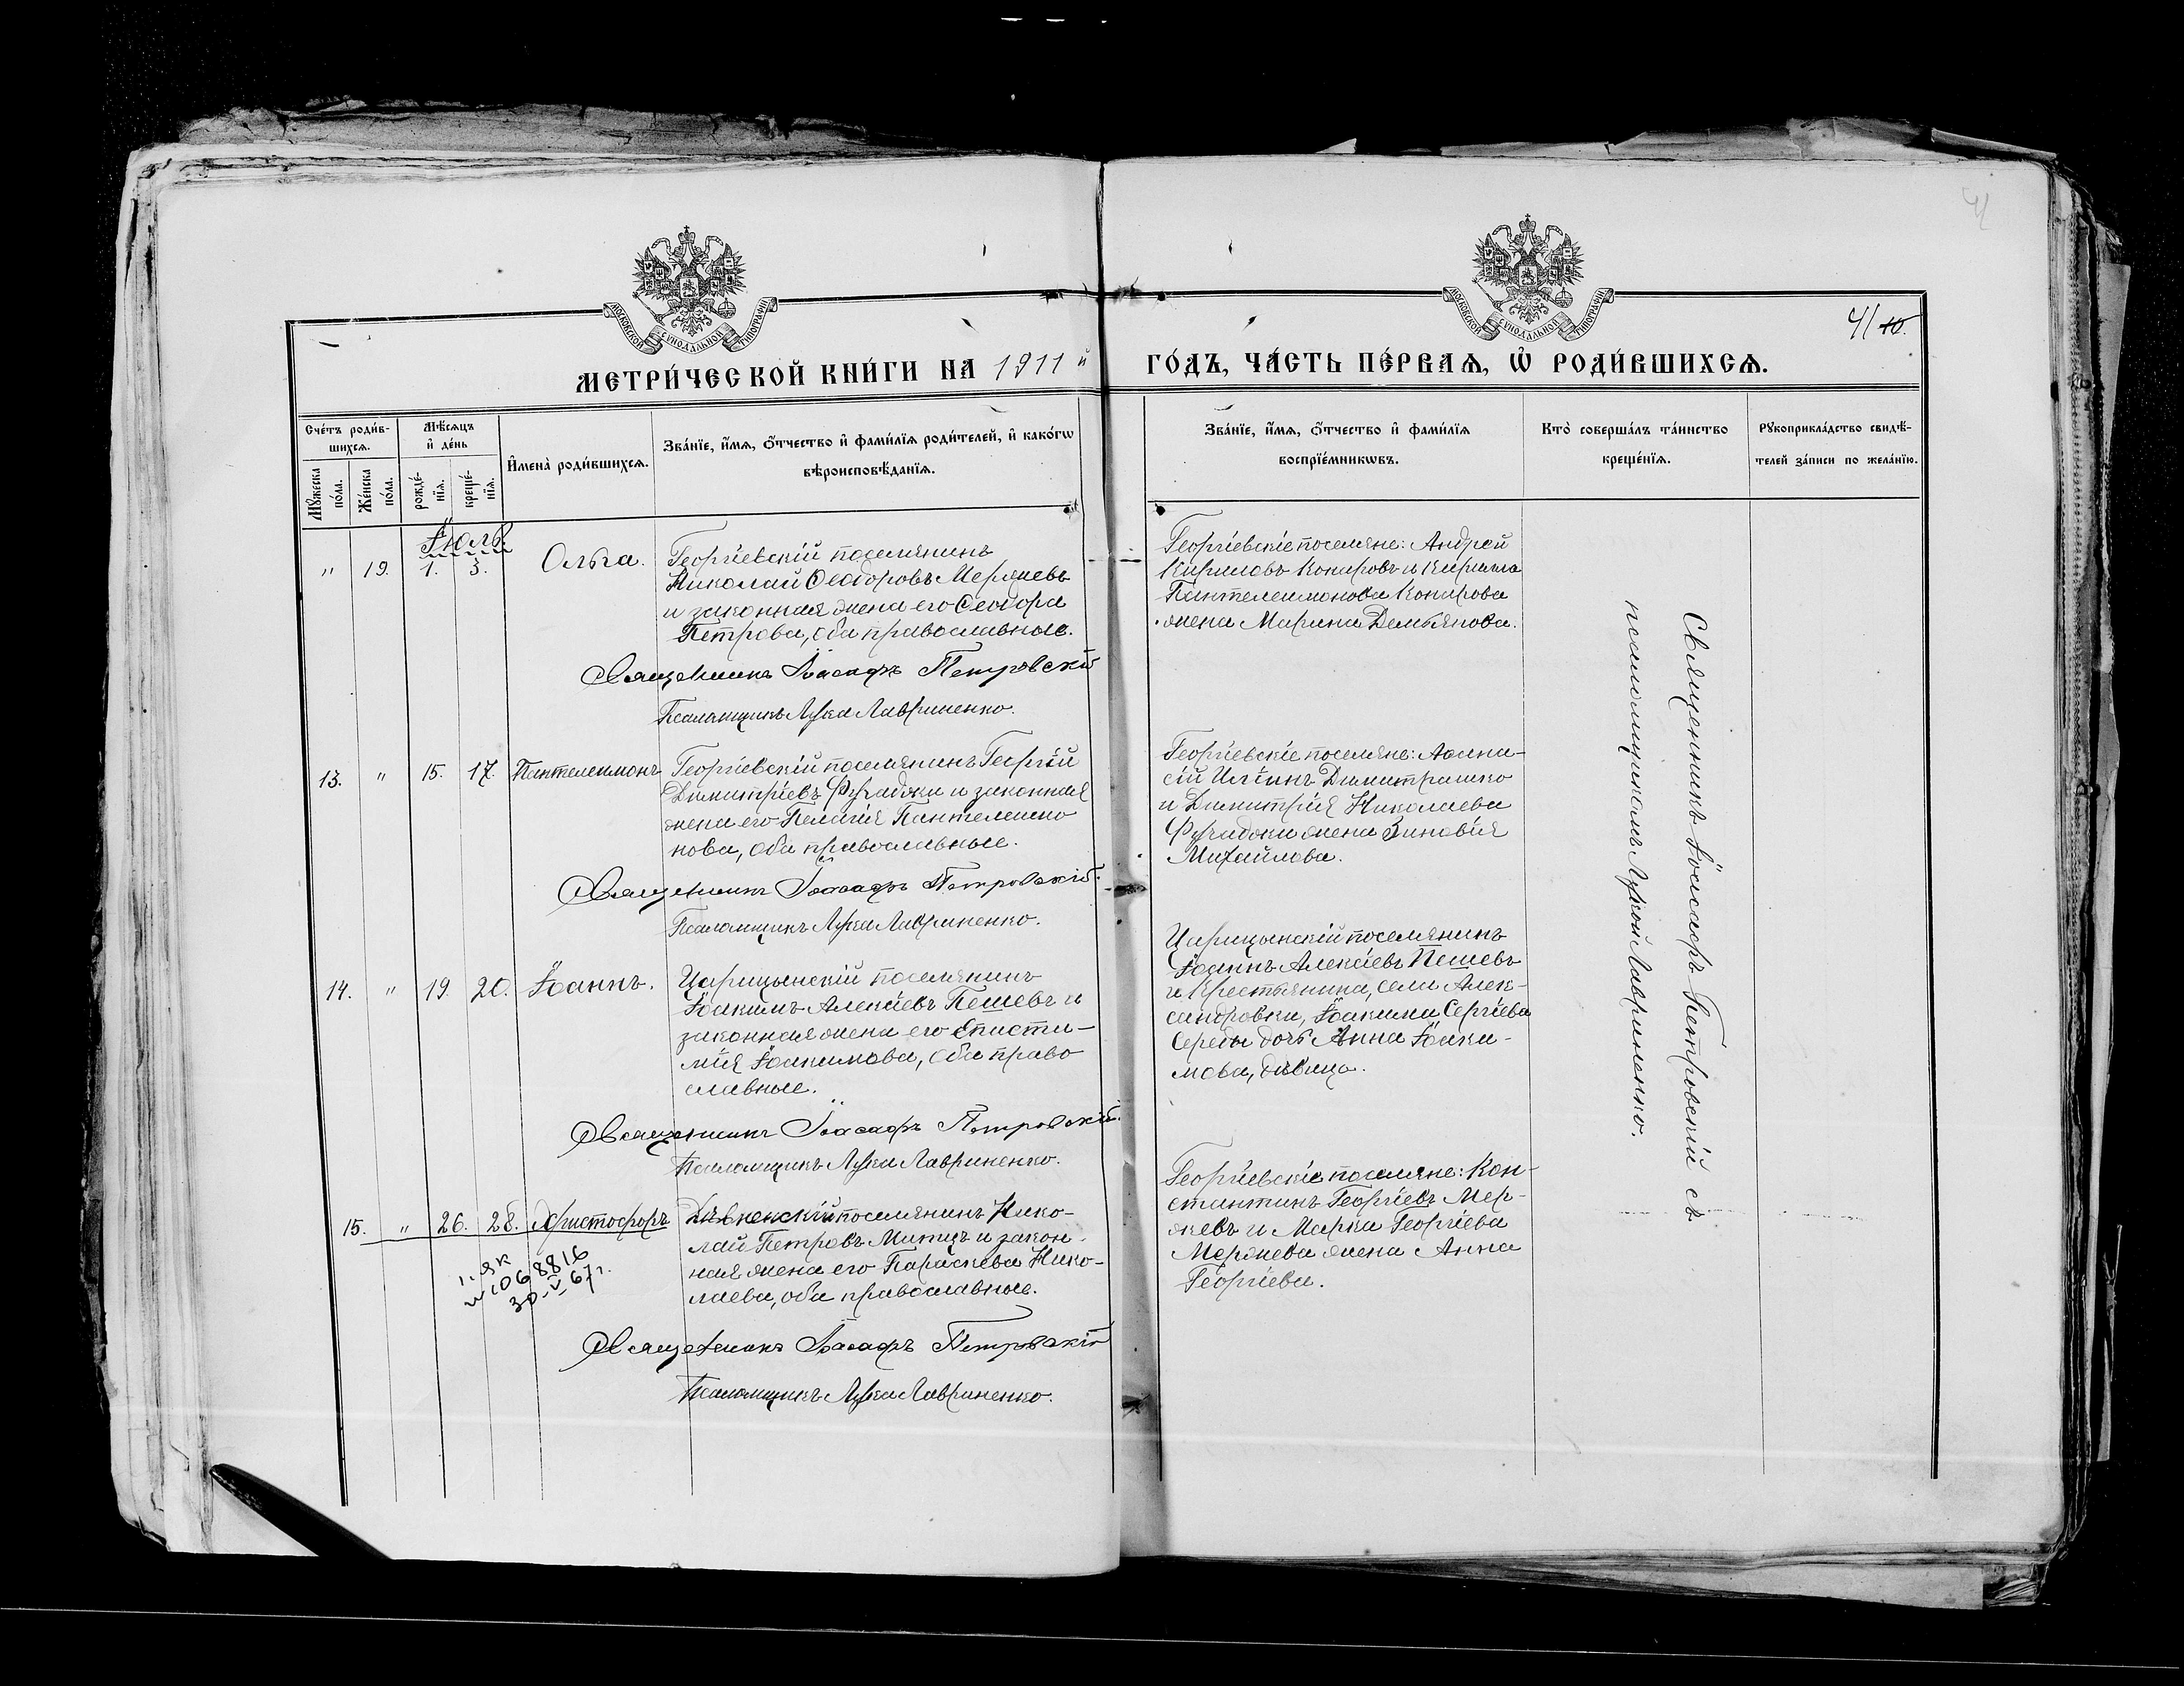 41
МОСКОВСКОЙ СѴНОДАЛЬНОЙ ТИПОГРАФІИ
МОСКОВСКОЙ СѴНОДАЛЬНОЙ ТИПОГРАФІИ
41 40.
МЕТРИ́ЧЕСКОЙ КНИ́ГИ НА 1911 й
ГО́ДЪ, ЧА́СТЬ ПЕ́РВАѦ, Ѡ҆ РОДИ́ВШИХСѦ.
Сче́тъ роди́в-
шихсѧ.
Мꙋ́жеска по́ла.
Же́нска по́ла.
Мѣ́сѧцъ
и҆ де́нь
рожде́-нїѧ.
креще́-нїѧ.
И҆мена̀ роди́вшихсѧ.
Зва́нїе, и҆́мѧ, ѻ҆́тчество и҆ фами́лїѧ роди́телей, и҆ како́гѡ
вѣроисповѣ́данїѧ.
Зва́нїе, и҆́мѧ, ѻ҆́тчество и҆ фами́лїѧ
воспрїе́мникѡвъ.
Кто̀ соверша́лъ та́инство
креще́нїѧ.
Рꙋкоприкла́дство свидѣ́-
телей за́писи по жела́нїю.
Іюль.
" 19. 1. 3. Ольга.
Георгіевскій поселянинъ
Николай Ѳеодоровъ Мержевъ
и законная жена его Ѳеодора
Петрова, оба православные.
Священникъ Іоасафъ Петровскій
Псаломщикъ Лука Лавриненко.
Георгіевскіе поселяне: Андрей
Кириловъ Конировъ и Кирила
Пантелеимонова Конирова
жена Марина Демьянова.
13. " 15. 17. Пантелеимонъ
Георгіевскій поселянинъ Георгій
Димитріевъ Фучаджи и законная
жена его Пелагія Пантелеимо
нова, оба православные.
Священникъ Іоасафъ Петровскій.
Псаломщикъ Лука Лавриненко.
Георгіевскіе поселяне: Аѳана-
сій Димитрашко
и Димитрія Николаева
Фучаджи жена Зиновія
Михайлова.
14. " 19. 20. Іоаннъ.
Царицынскій поселянинъ
Іоакимъ Алексѣевъ Пешевъ и
законная жена его Еписти-
мія Іоакимова, оба право
славные.
Священникъ Іоасафъ Петровскій.
Псаломщикъ Лука Лавриненко.
Царицынскій поселянинъ
Іоаннъ Алексѣевъ Пешевъ
и крестьянина, села Алек-
сандровки, Іоакима Сергіева
Середы дочь Анна Іоаки-
мова, дѣвица.
15. " 26. 28. Христофоръ
поселянинъ Нико-
лай Петровъ Митцъ и закон-
ная жена его Параскева Нико-
лаева, оба православные.
Священникъ Іоасафъ Петровскій
Псаломщикъ Лука Лавриненко.
I-ЯК
№ 1068816
30-V-67 г.
Георгіевскіе поселяне: Кон-
стантинъ Георгіевъ Мер-
жевъ и Марка Георгіева
Мержева жена Анна
Георгіева.
Священникъ Іоасафъ Петровскій съ
псаломщикомъ Лукой Лавриненко.